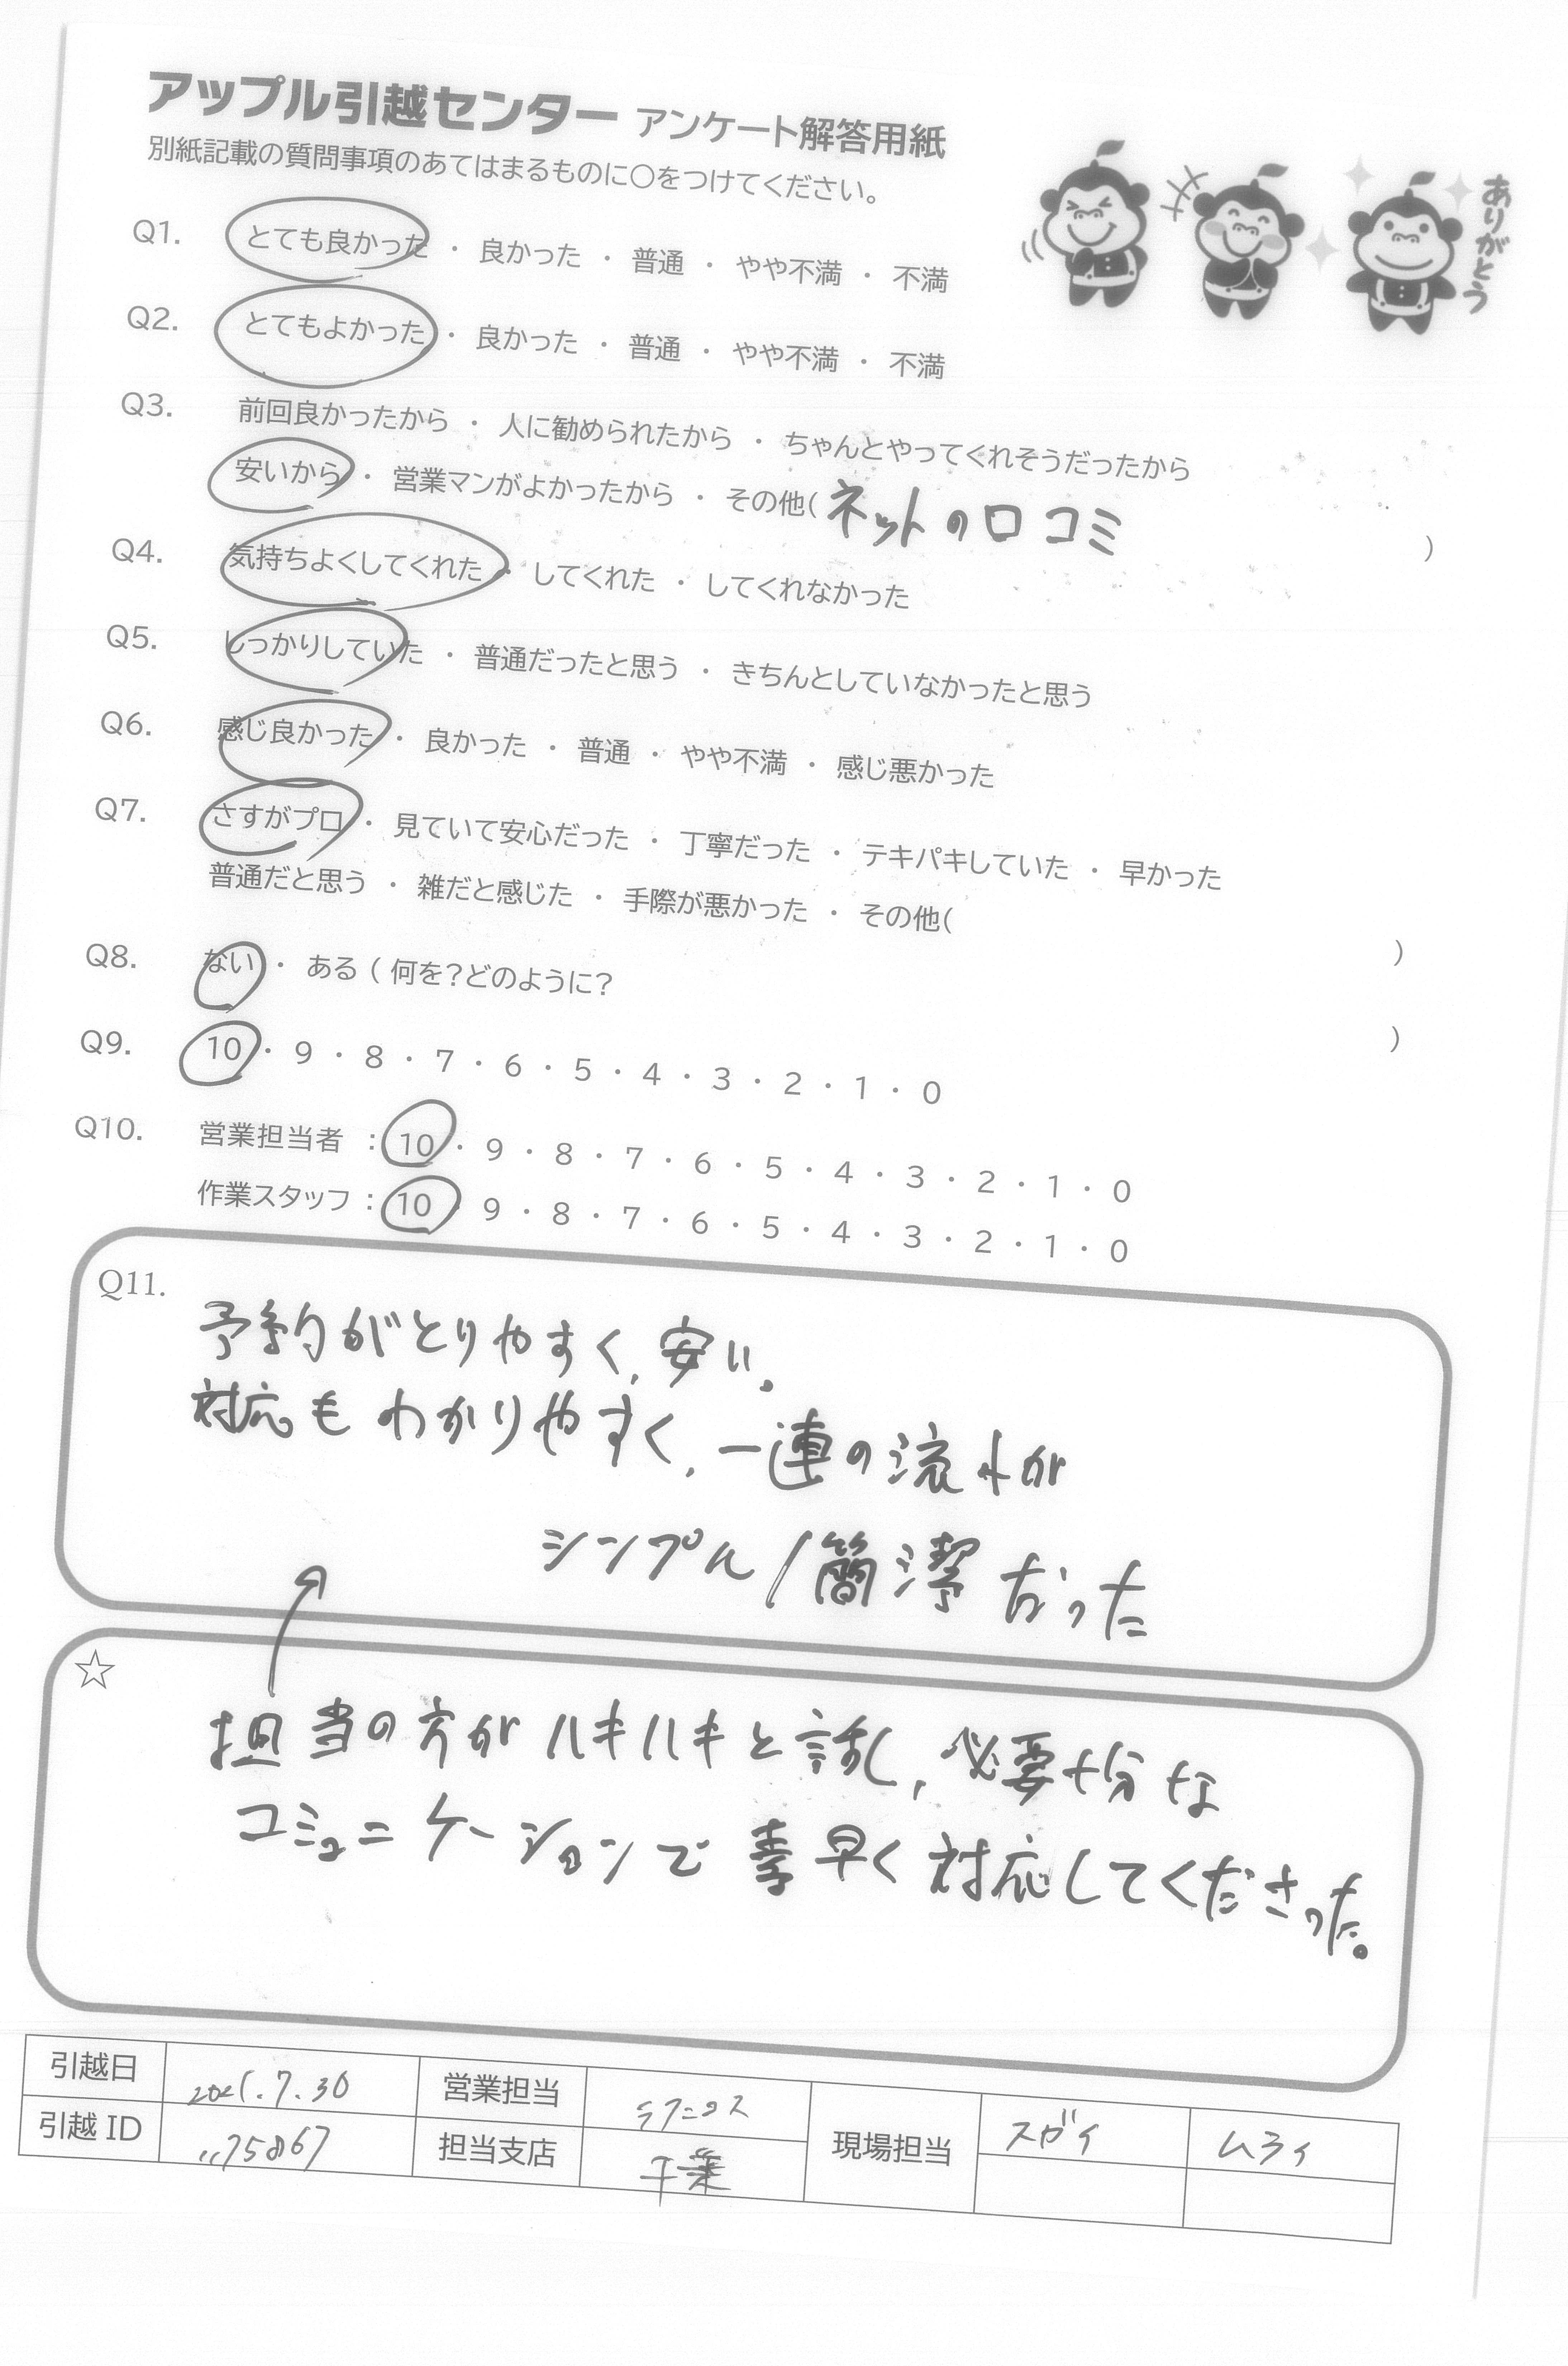 アップル引越センター アンケート解答用紙
別紙記載の質問事項のあてはまるものに〇をつけてください。
ありがとう
Q1. とても良かった ・ 良かった ・ 普通 ・ やや不満 ・ 不満
Q2. とてもよかった ・ 良かった ・ 普通 ・ やや不満 ・ 不満
Q3. 前回良かったから ・ 人に勧められたから ・ ちゃんとやってくれそうだったから
安いから ・ 営業マンがよかったから ・ その他( ネットの口コミ )
Q4. 気持ちよくしてくれた ・ してくれた ・ してくれなかった
Q5. しっかりしていた ・ 普通だったと思う ・ きちんとしていなかったと思う
Q6. 感じ良かった ・ 良かった ・ 普通 ・ やや不満 ・ 感じ悪かった
Q7. さすがプロ ・ 見ていて安心だった ・ 丁寧だった ・ テキパキしていた ・ 早かった
普通だと思う ・ 雑だと感じた ・ 手際が悪かった ・ その他( )
Q8. ない ・ ある ( 何を?どのように? )
Q9. 10 ・ 9 ・ 8 ・ 7 ・ 6 ・ 5 ・ 4 ・ 3 ・ 2 ・ 1 ・ 0
Q10. 営業担当者 : 10 ・ 9 ・ 8 ・ 7 ・ 6 ・ 5 ・ 4 ・ 3 ・ 2 ・ 1 ・ 0
作業スタッフ : 10 ・ 9 ・ 8 ・ 7 ・ 6 ・ 5 ・ 4 ・ 3 ・ 2 ・ 1 ・ 0
Q11.
予約がとりやすく、安い。
対応もわかりやすく、一連の流れが
シンプル/簡潔だった
☆
担当の方がハキハキと話し、必要十分な
コミュニケーションで素早く対応してくださった。
引越日 2025.7.30 営業担当 現場担当 スガイ ムライ
引越 ID 担当支店 千葉